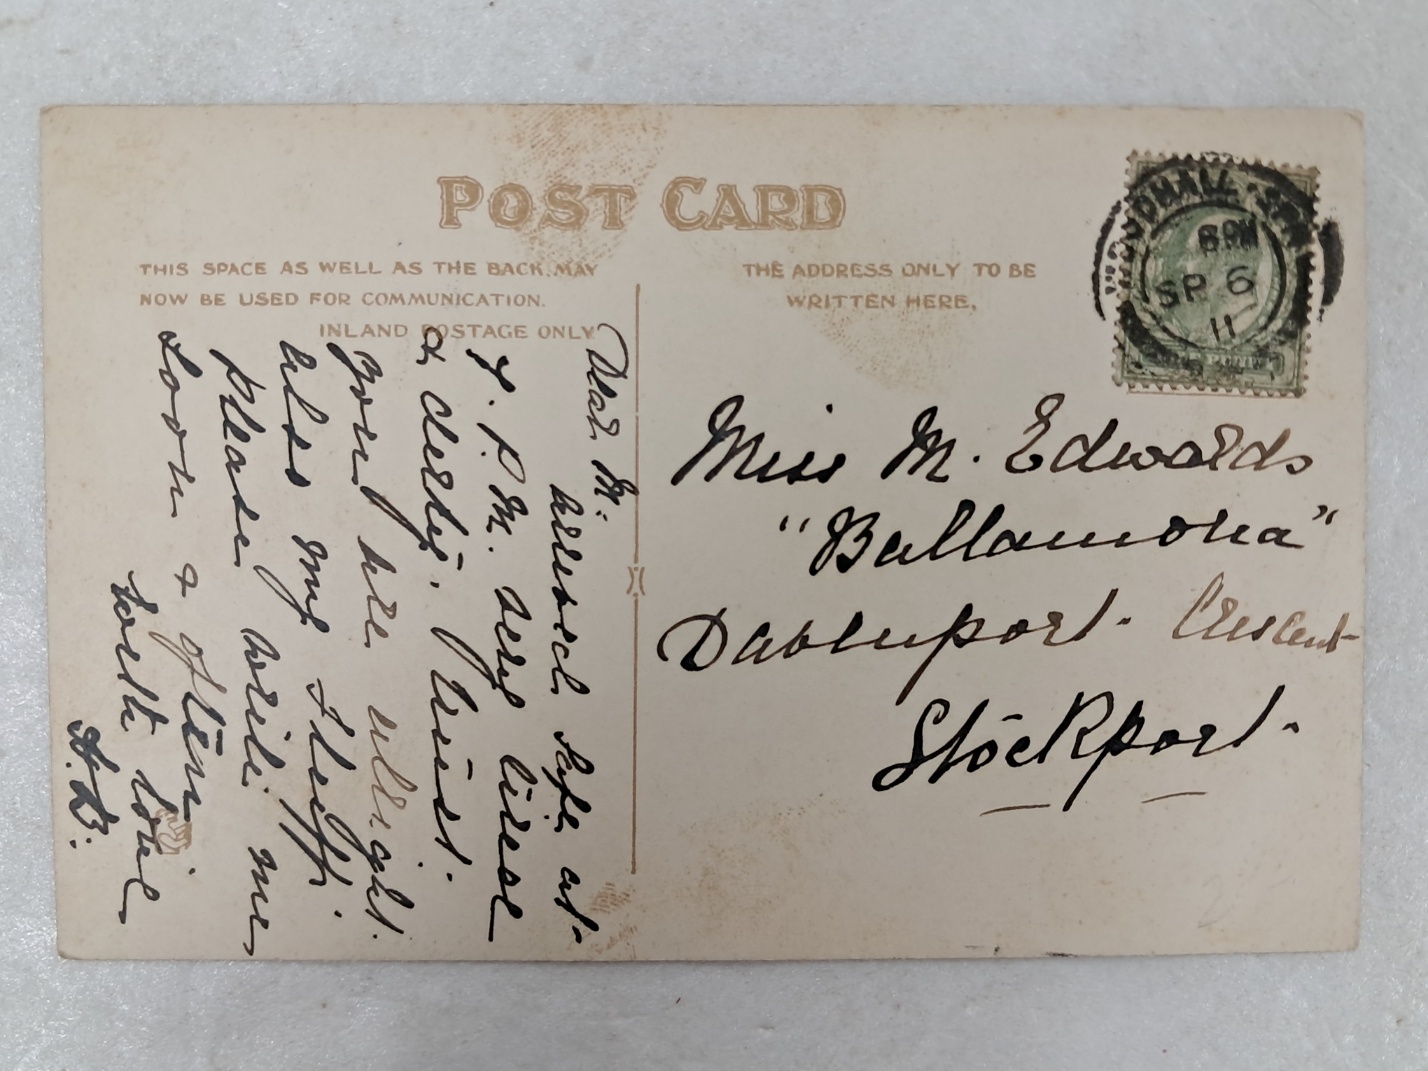 POST CARD
THIS SPACE AS WELL AS THE BACK MAY
NOW BE USED FOR COMMUNICATION.
INLAND POSTAGE ONLY
THE ADDRESS ONLY TO BE
WRITTEN HERE.
WOODHALL · SPA
6 PM
SP 6
11
Dear M.
arrived safe at
7. P.M. very tired
& dirty. Trust
you are allright
also my
Please write me
soon & often
with love
A.B.
Miss M. Edwards
"Ballamona"
Davenport. Crescent
Stockport.